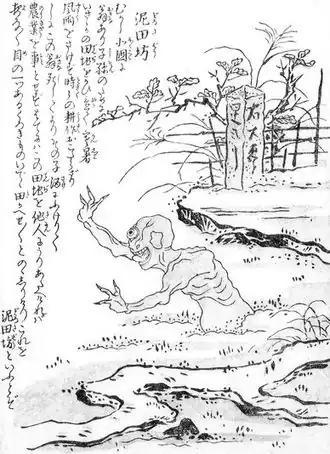 泥田坊
むかし北国に
翁あり子孫のために
いさゝかの田地をかひ置て寒暑
風雨をさけず時々の耕作おこたらざり
しにこの翁死してよりその子酒にふけりて
農業を事とせずはてにはこの田地を他人にうりあたへければ
夜な〳〵目の一つあるくろきものいでゝ田をかへせ〳〵とのゝしりけりこれを
泥田坊といふとぞ